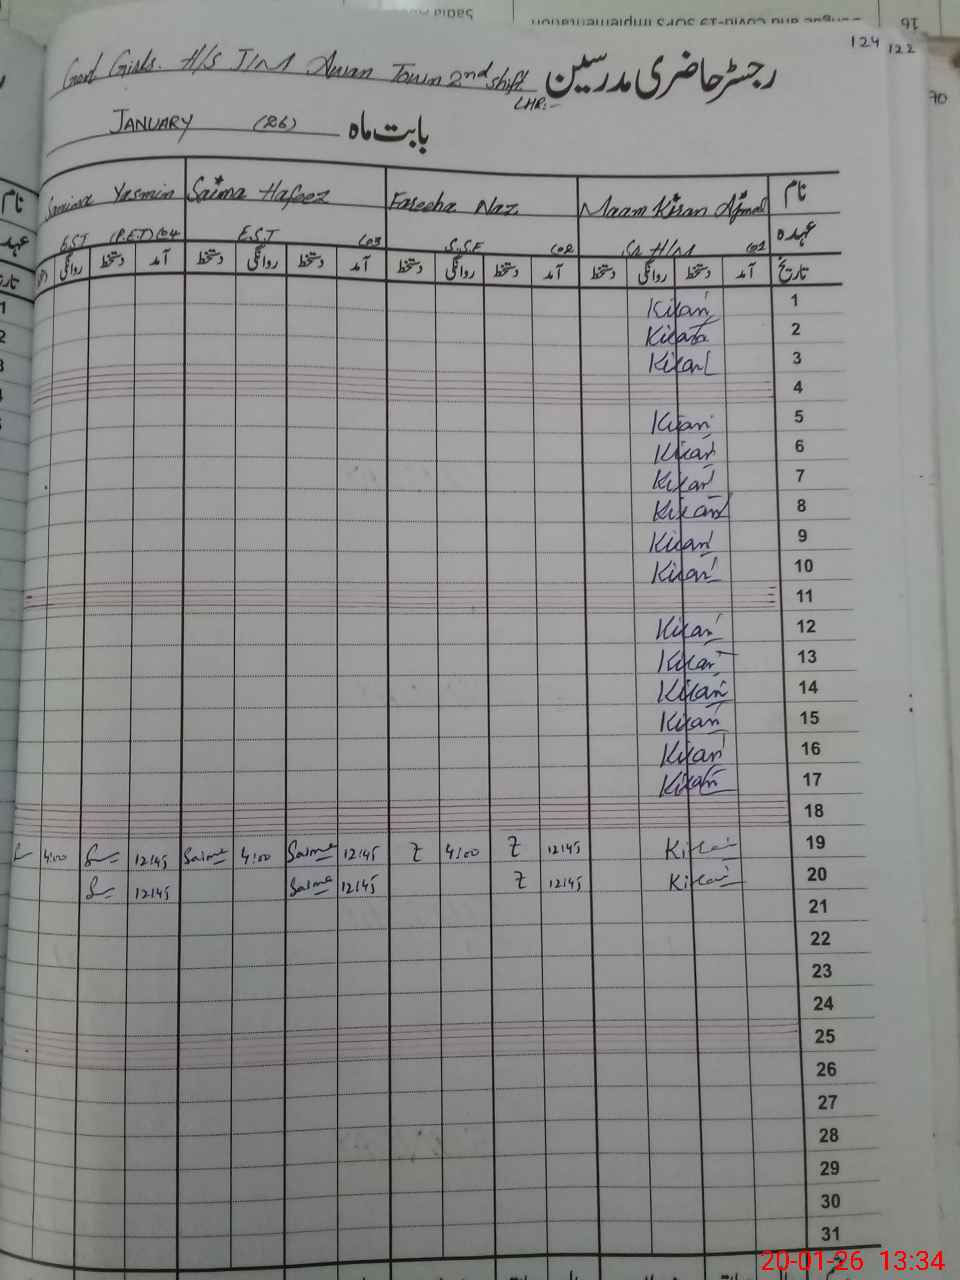 16
124 122
Govt Girls. H/S J/M Awan Town 2nd shift رجسٹر حاضری مدرسین
LHR:-
70
JANUARY (26) بابت ماہ
Yasmin Saima Hafeez Faseeha Naz Maam Kiran Ajmal نام
EST (P.E.T) 04 E.S.T 03 S.S.E 02 Sr H/M 01 عہدہ
روانگی دستخط آمد دستخط روانگی دستخط آمد دستخط روانگی دستخط آمد دستخط روانگی دستخط آمد تاریخ
Kiran 1
Kiran 2
Kiran 3
4
Kiran 5
Kiran 6
Kiran 7
Kiran 8
Kiran 9
Kiran 10
11
Kiran 12
Kiran 13
Kiran 14
Kiran 15
Kiran 16
Kiran 17
18
4:00 12:45 Saima 4:00 Saima 12:45 Z 4:00 Z 12:45 Kiran 19
12:45 Saima 12:45 Z 12:45 Kiran 20
21
22
23
24
25
26
27
28
29
30
31
20-01-26 13:34